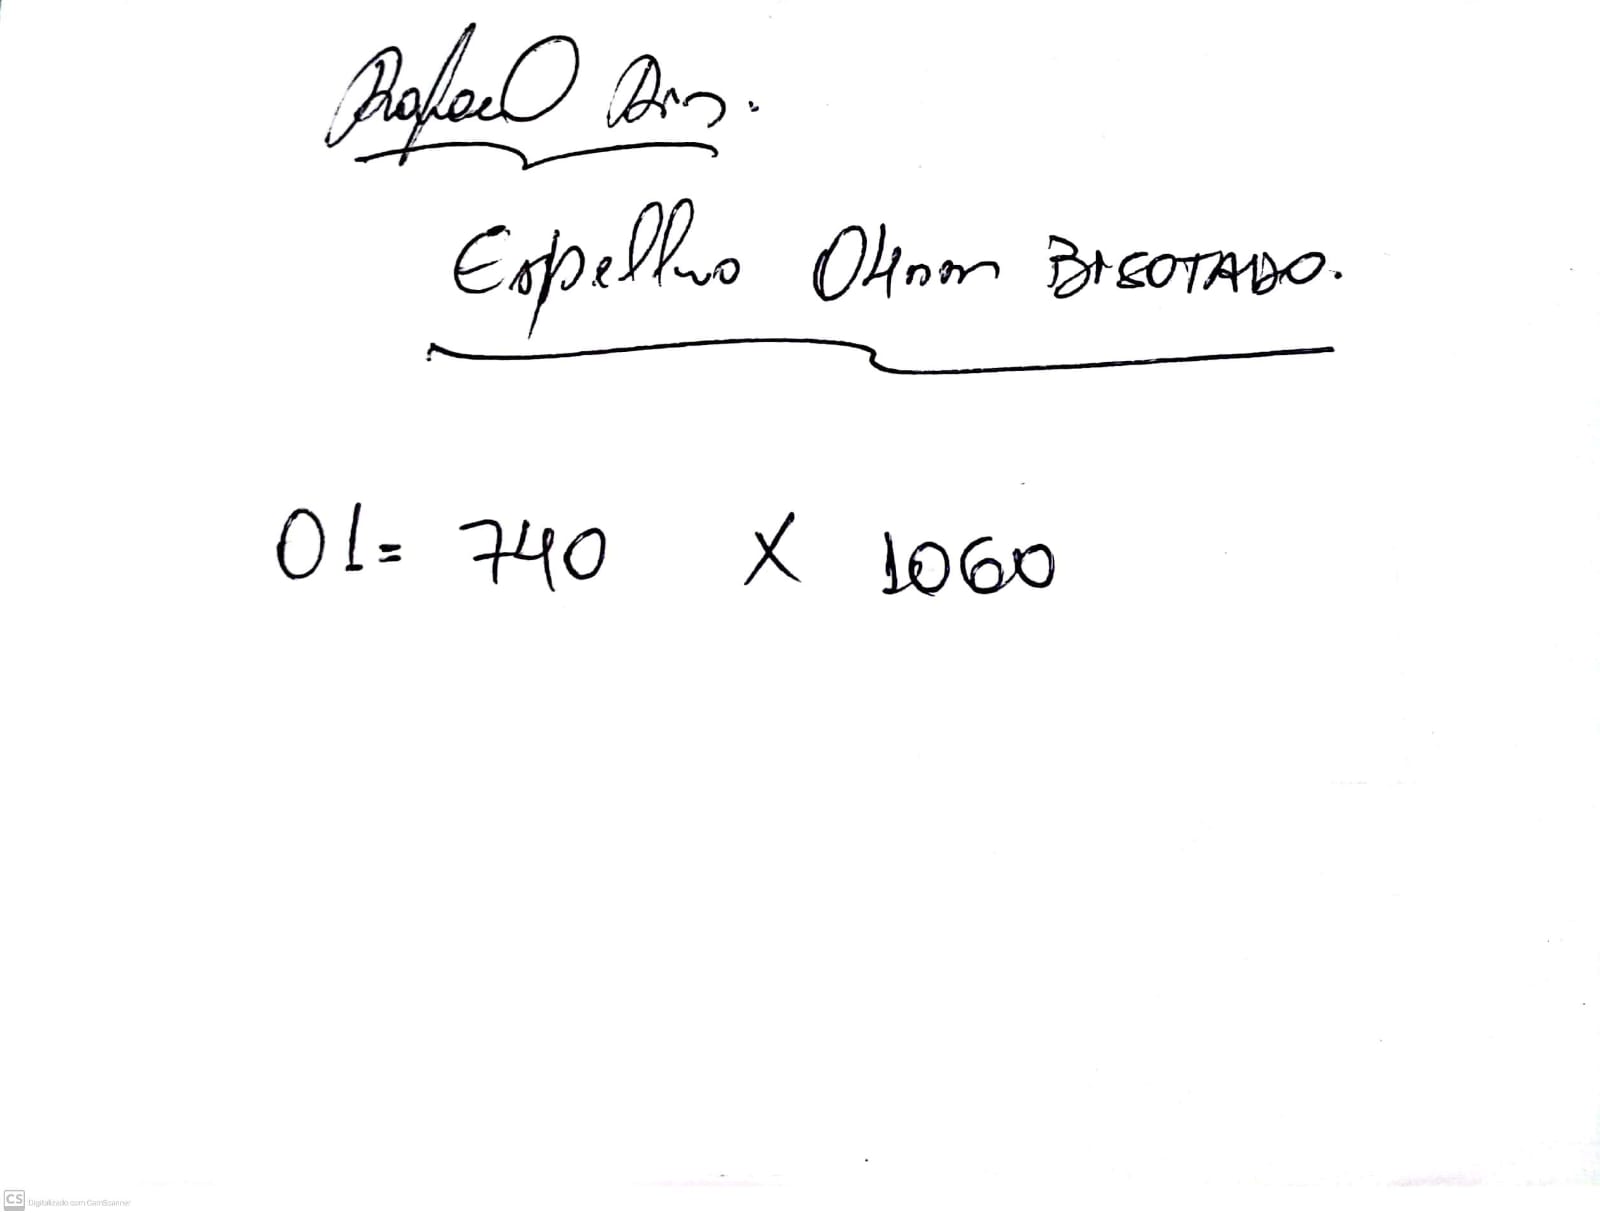 Rafael
Espelho 04mm BISOTADO.
01= 740 X 1060
CS Digitalizado com CamScanner